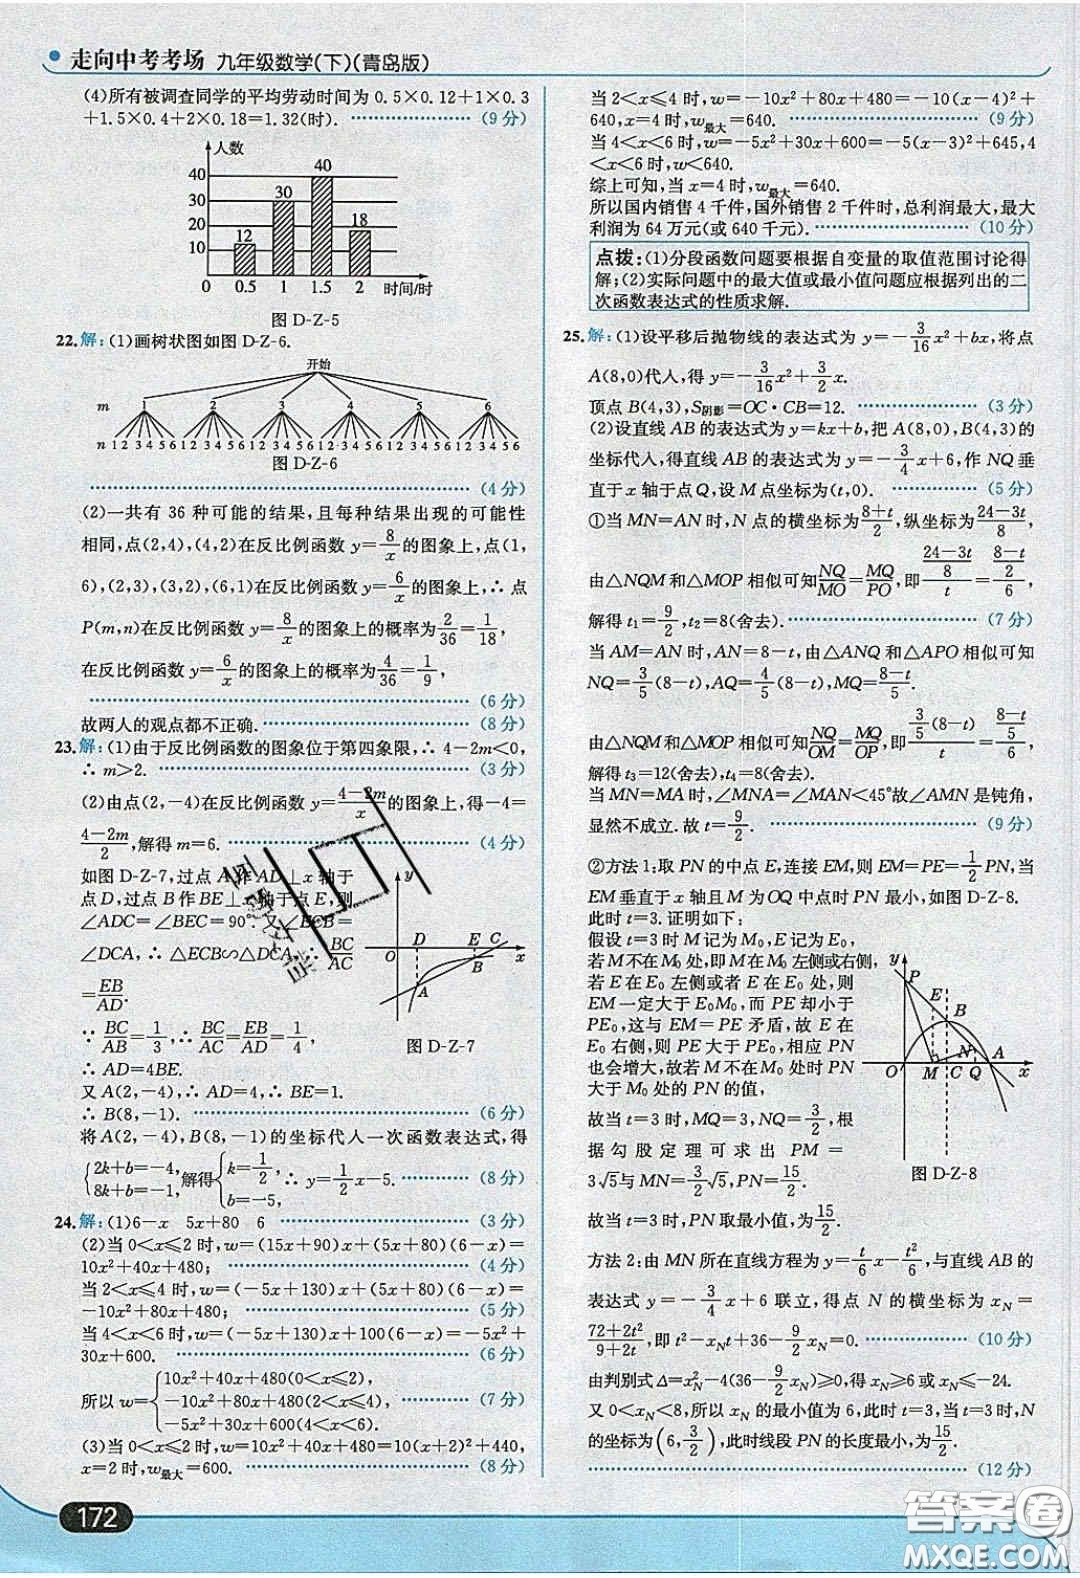 走向中考考场 九年级数学(下)(青岛版)
(4)所有被调查同学的平均劳动时间为 0.5×0.12+1×0.3
+1.5×0.4+2×0.18=1.32(时). (9 分)
人数
40
40
30
30
20
18
12
10
0 0.5 1 1.5 2 时间/时
图 D-Z-5
22.解:(1)画树状图如图 D-Z-6.
开始
m 1 2 3 4 5 6
n 1 2 3 4 5 6 1 2 3 4 5 6 1 2 3 4 5 6 1 2 3 4 5 6 1 2 3 4 5 6 1 2 3 4 5 6
图 D-Z-6
(4 分)
(2)一共有 36 种可能的结果,且每种结果出现的可能性
相同,点(2,4),(4,2)在反比例函数 y=8/x 的图象上,点(1,
6),(2,3),(3,2),(6,1)在反比例函数 y=6/x 的图象上,∴ 点
P(m,n)在反比例函数 y=8/x 的图象上的概率为 2/36=1/18,
在反比例函数 y=6/x 的图象上的概率为 4/36=1/9,
(6 分)
故两人的观点都不正确. (8 分)
23.解:(1)由于反比例函数的图象位于第四象限,∴ 4-2m<0,
∴ m>2. (3 分)
(2)由点(2,-4)在反比例函数 y=(4-2m)/x 的图象上,得-4=
(4-2m)/2,解得 m=6. (4 分)
如图 D-Z-7,过点 A 作 AD⊥x 轴于
点 D,过点 B 作 BE⊥x 轴于点 E,则
∠ADC=∠BEC=90°.又∠ECB=
∠DCA,∴ △ECB∽△DCA,∴ BC/AC
=EB/AD.
∵ BC/AB=1/3,∴ BC/AC=EB/AD=1/4,
∴ AD=4BE.
又 A(2,-4),∴ AD=4,∴ BE=1.
∴ B(8,-1). (6 分)
y
D E C
O B x
A
图 D-Z-7
将 A(2,-4),B(8,-1)的坐标代人一次函数表达式,得
{2k+b=-4, 8k+b=-1,解得{k=1/2, b=-5,∴ y=1/2x-5. (8 分)
24.解:(1)6-x 5x+80 6 (3 分)
(2)当 0<x≤2 时,w=(15x+90)x+(5x+80)(6-x)=
10x²+40x+480; (4 分)
当 2<x≤4 时,w=(-5x+130)x+(5x+80)(6-x)=
-10x²+80x+480; (5 分)
当 4<x<6 时,w=(-5x+130)x+6×5(6-x)=-5x²+
30x+600. (6 分)
所以 w={10x²+40x+480(0<x≤2), -10x²+80x+480(2<x≤4), -5x²+30x+600(4<x<6). (7 分)
(3)当 0<x≤2 时,w=10x²+40x+480=10(x+2)²+440,
x=2 时,w最大=600. (8 分)
当 2<x≤4 时,w=-10x²+80x+480=-10(x-4)²+
640,x=4 时,w最大=640. (9 分)
当 4<x<6 时,w=-5x²+30x+600=-5(x-3)²+645,4
<x<6 时,w<640.
综上可知,当 x=4 时,w最大=640.
所以国内销售 4 千件,国外销售 2 千件时,总利润最大,最大
利润为 64 万元(或 640 千元). (10 分)
点拨:(1)分段函数问题要根据自变量的取值范围讨论得
解;(2)实际问题中的最大值或最小值问题应根据列出的二
次函数表达式的性质求解.
25.解:(1)设平移后抛物线的表达式为 y=-3/16x²+bx,将点
A(8,0)代人,得 y=-3/16x²+3/2x.
顶点 B(4,3),S阴影=OC·CB=12. (3 分)
(2)设直线 AB 的表达式为 y=kx+b,把 A(8,0),B(4,3)的
坐标代人,得直线 AB 的表达式为 y=-3/4x+6,作 NQ 垂
直于 x 轴于点 Q,设 M 点坐标为(t,0). (5 分)
①当 MN=AN 时,N 点的横坐标为(8+t)/2,纵坐标为(24-3t)/8,
由△NQM 和△MOP 相似可知 NQ/MO=MQ/PO,即((24-3t)/8)/t=((8-t)/2)/6,
解得 t₁=9/2,t₂=8(舍去). (7 分)
当 AM=AN 时,AN=8-t,由△ANQ 和△APO 相似可知
NQ=3/5(8-t),AQ=4/5(8-t),MQ=(8-t)/5.
由△NQM 和△MOP 相似可知 NQ/OM=MQ/OP,即(3/5(8-t))/t=((8-t)/5)/6,
解得 t₃=12(舍去),t₄=8(舍去).
当 MN=MA 时,∠MNA=∠MAN<45°故∠AMN 是钝角,
显然不成立.故 t=9/2. (9 分)
②方法 1:取 PN 的中点 E,连接 EM,则 EM=PE=1/2PN,当
EM 垂直于 x 轴且 M 为 OQ 中点时 PN 最小,如图 D-Z-8.
此时 t=3.证明如下:
假设 t=3 时 M 记为 M₀,E 记为 E₀.
若 M 不在 M₀ 处,即 M 在 M₀ 左侧或右侧,
若 E 在 E₀ 左侧或者 E 在 E₀ 处,则
EM 一定大于 E₀M₀,而 PE 却小于
PE₀,这与 EM=PE 矛盾,故 E 在
E₀ 右侧,则 PE 大于 PE₀,相应 PN
也会增大,故若 M 不在 M₀ 处时 PN
大于 M₀ 处的 PN 的值,
故当 t=3 时,MQ=3,NQ=3/2,根
据勾股定理可求出 PM=
3√5与 MN=3/2√5,PN=15/2.
y
P
E B
N A
O M C Q x
图 D-Z-8
故当 t=3 时,PN 取最小值,为15/2.
方法 2:由 MN 所在直线方程为 y=t/6x-t²/6,与直线 AB 的
表达式 y=-3/4x+6 联立,得点 N 的横坐标为 xN=
(72+2t²)/(9+2t),即 t²-xNt+36-9/2xN=0. (10 分)
由判别式 Δ=x²N-4(36-9/2xN)≥0,得 xN≥6 或 xN≤-24.
又 0<xN<8,所以 xN 的最小值为 6,此时 t=3,当 t=3 时,N
的坐标为(6,3/2),此时线段 PN 的长度最小,为15/2.
(12 分)
172
答案圈
MXQE.COM